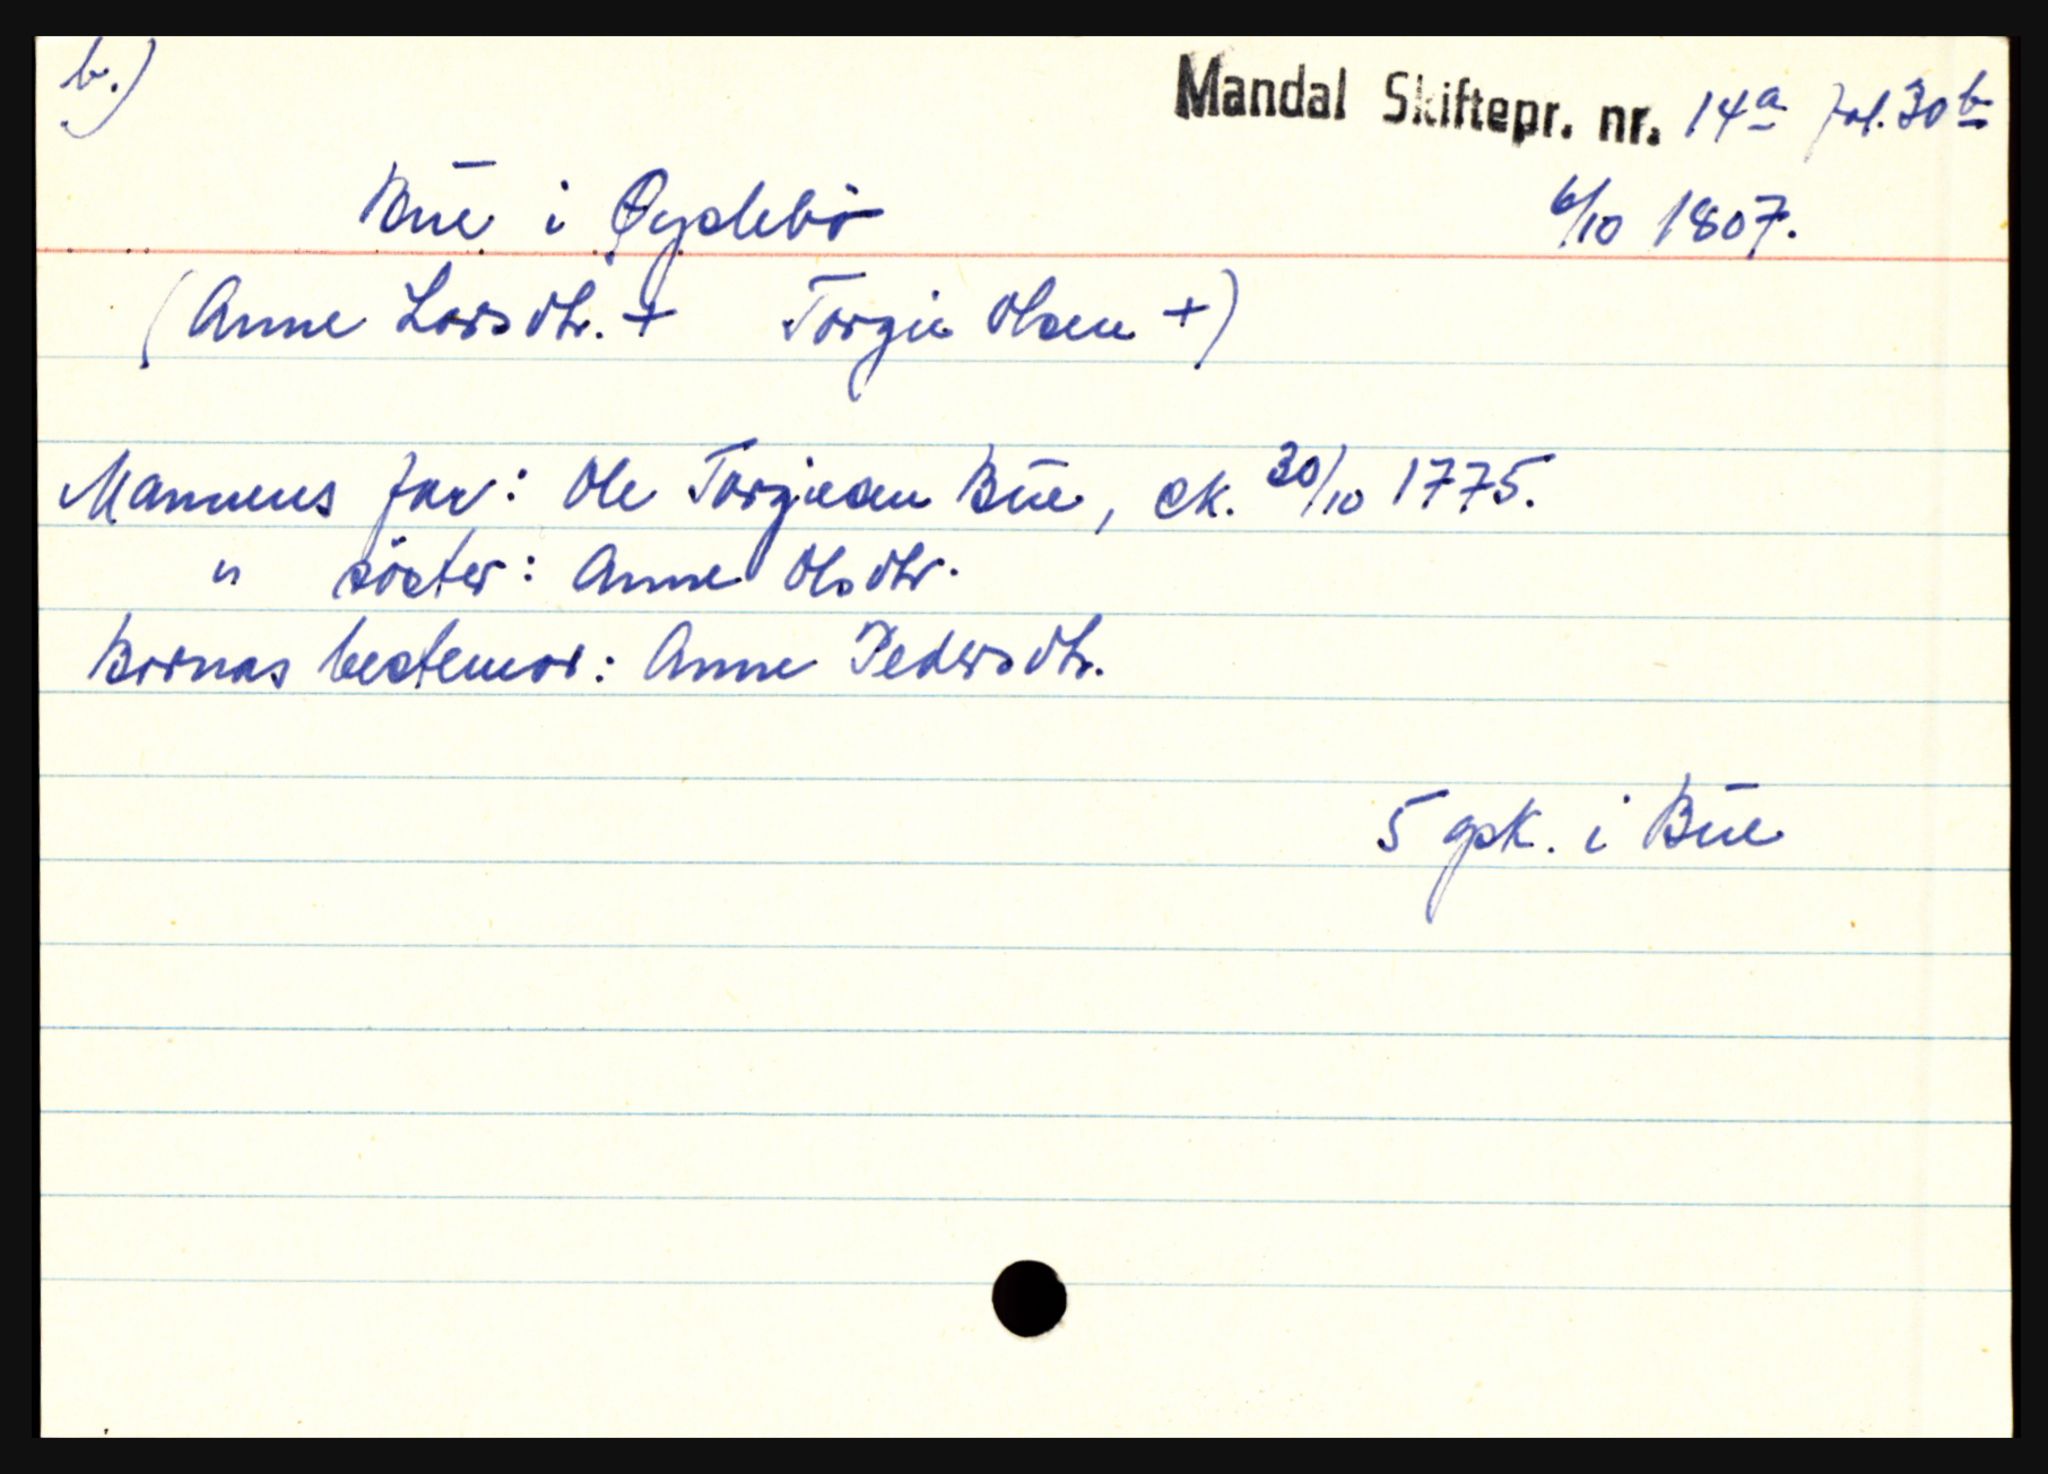 b.)
Mandal Skiftepr. nr. 14a fol. 30b
Bue i Øydebö 6/10 1807.
(Anne Larsdtr. + Torgie Olsen +)
Mannens far: Ole Torgiesen Bue, sk. 30/10 1775.
" söster: Anne Olsdtr.
Bornas bestemor: Anne Pedersdtr.
5 gpk. i Bue